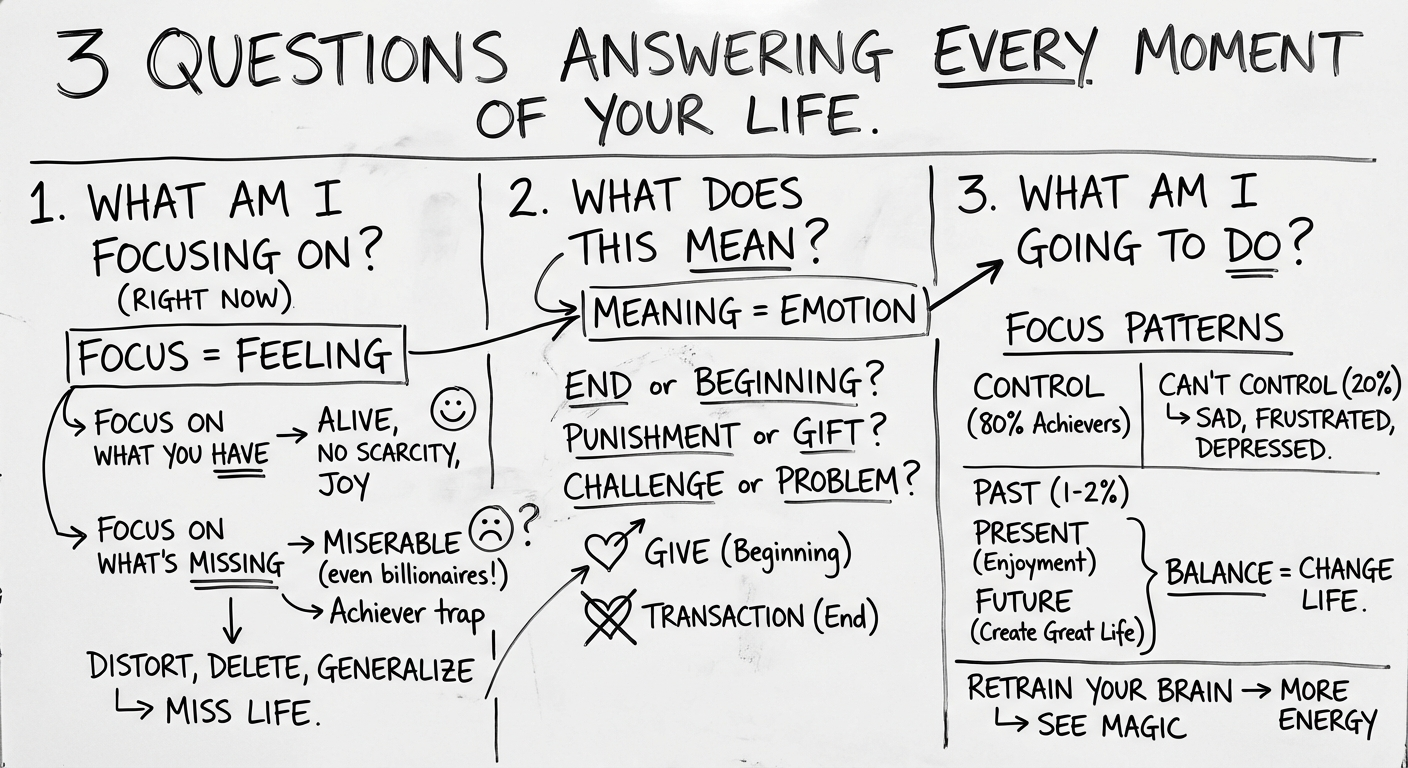 3 QUESTIONS ANSWERING EVERY MOMENT
OF YOUR LIFE.
1. WHAT AM I
FOCUSING ON?
(RIGHT NOW)
FOCUS = FEELING
FOCUS ON
WHAT YOU HAVE → ALIVE,
NO SCARCITY,
JOY
FOCUS ON
WHAT'S MISSING → MISERABLE ?
(even billionaires!)
Achiever trap
DISTORT, DELETE, GENERALIZE
MISS LIFE.
2. WHAT DOES
THIS MEAN?
MEANING = EMOTION
END or BEGINNING?
PUNISHMENT or GIFT?
CHALLENGE or PROBLEM?
GIVE (Beginning)
TRANSACTION (End)
3. WHAT AM I
GOING TO DO?
FOCUS PATTERNS
CONTROL
(80% Achievers)
CAN'T CONTROL (20%)
SAD, FRUSTRATED,
DEPRESSED.
PAST (1-2%)
PRESENT
(Enjoyment)
FUTURE
(Create Great Life)
BALANCE = CHANGE
LIFE.
RETRAIN YOUR BRAIN → MORE
ENERGY
SEE MAGIC